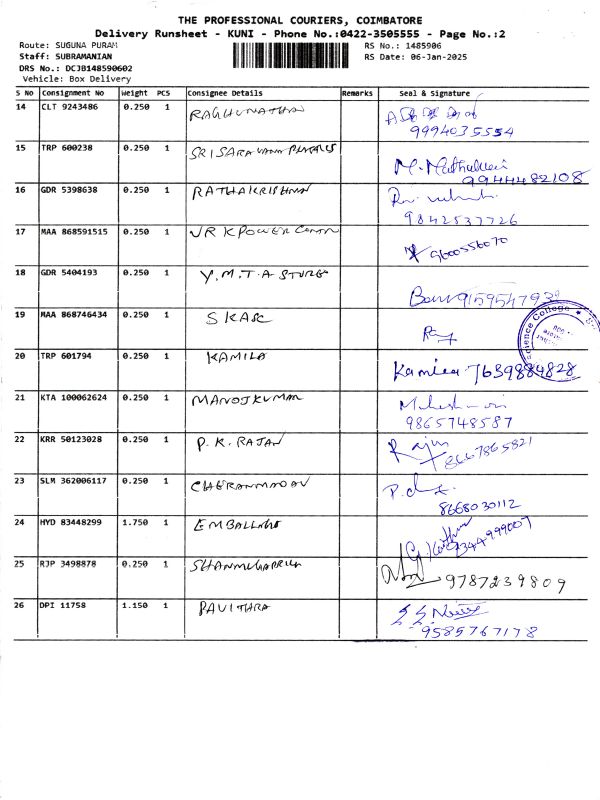 THE PROFESSIONAL COURIERS, COIMBATORE
Delivery Runsheet - KUNI - Phone No.:0422-3505555 - Page No.:2
Route: SUGUNA PURAM
RS No.: 1485906
Staff: SUBRAMANIAN
RS Date: 06-Jan-2025
DRS No.: DCJB148590602
Vehicle: Box Delivery
S NO Consignment No Weight PCS Consignee Details Remarks Seal & Signature
14 CLT 9243486 0.250 1 RAGHUNATHAN
9994035554
15 TRP 600238 0.250 1 SRI SARAVANA
9944482108
16 GDR 5398638 0.250 1 RATHAKRISHNAN
9842537726
17 MAA 868591515 0.250 1 VRK POWER
9600556070
18 GDR 5404193 0.250 1 Y.M.T.A STORES
19 MAA 868746434 0.250 1 SKASC
Science College
20 TRP 601794 0.250 1 KAMILA
Kamila 7639884828
21 KTA 100062624 0.250 1 MANOJKUMAR
9865748587
22 KRR 50123028 0.250 1 P.K.RAJAN
Rajan
8667865821
23 SLM 362006117 0.250 1 CHERANMADAV
8668030112
24 HYD 83448299 1.750 1
25 RJP 3498878 0.250 1
9787239809
26 DPI 11758 1.150 1 PAVITHRA
9585767178